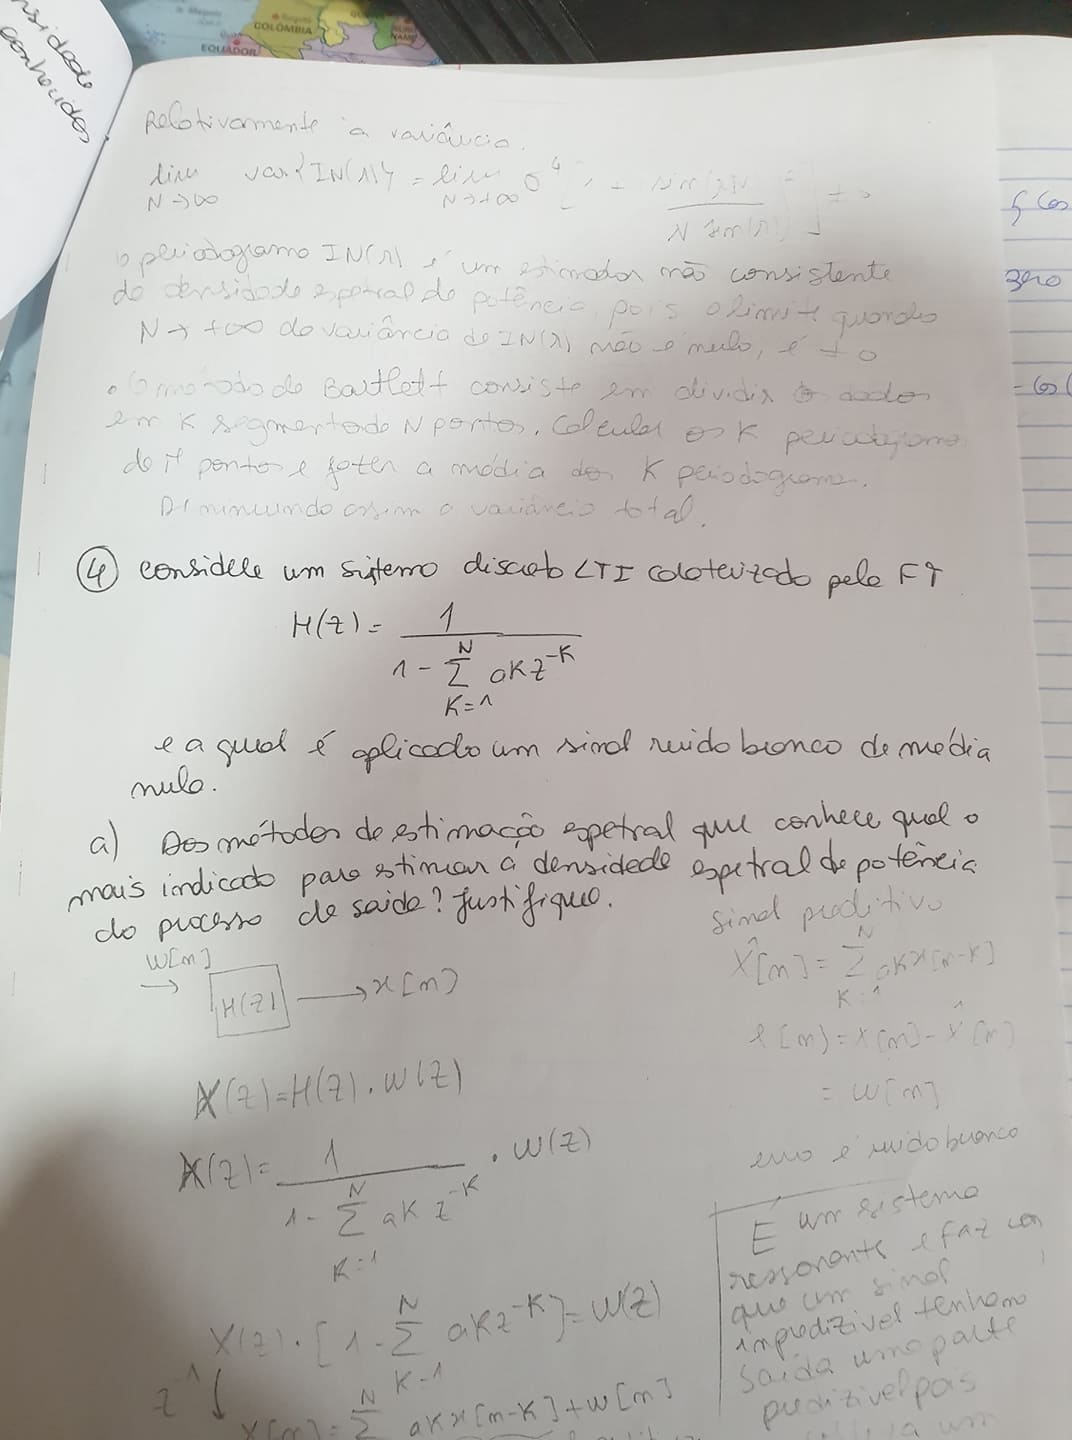 nsidade
conhecidos
COLÔMBIA
EQUADOR
Relativamente à variância.
lim var{IN(λ)} = lim σ^4 [1 + sin(λN / N sen(λ) ] ≠ 0
N→∞ N→+∞
o periodograma IN(λ) é um estimador não consistente
da densidade espetral de potência, pois o limite quando
N→ +∞ da variância de IN(λ) não é nulo, é ≠ 0
• O método de Bartlett consiste em dividir os dados
em K segmentos de N pontos. Calcular os K periodograma
de N pontos e fazer a média dos K periodograma.
Diminuindo assim a variância total.
④ Considere um sistema discreto LTI caraterizado pela FT
H(z) = 1 / (1 - Σ ak z^-K)
N
K=1
e a qual é aplicado um sinal ruido branco de média
nula.
a) Dos métodos de estimação espetral que conhece qual o
mais indicado para estimar a densidade espetral de potência
do processo de saida? Justifique.
W[n] → H(z) → x[n]
X(z)=H(z).W(z)
X(z)= 1 / (1 - Σ ak z^-K) . W(z)
N
K=1
X(z).[1 - Σ ak z^-K]=W(z)
N
K=1
z^-1 ↓
X[n] = Σ ak x[n-K]+w[n]
N
sinal preditivo
x̂[n] = Σ ak x[n-K]
N
K=1
e[n] = x[n] - x̂[n]
= w[n]
erro é ruido branco
É um sistema
ressonante e faz con
que um sinal
impredizivel tenha na
saida uma parte
predizivel pois
um
ς cos
zero
= cos(